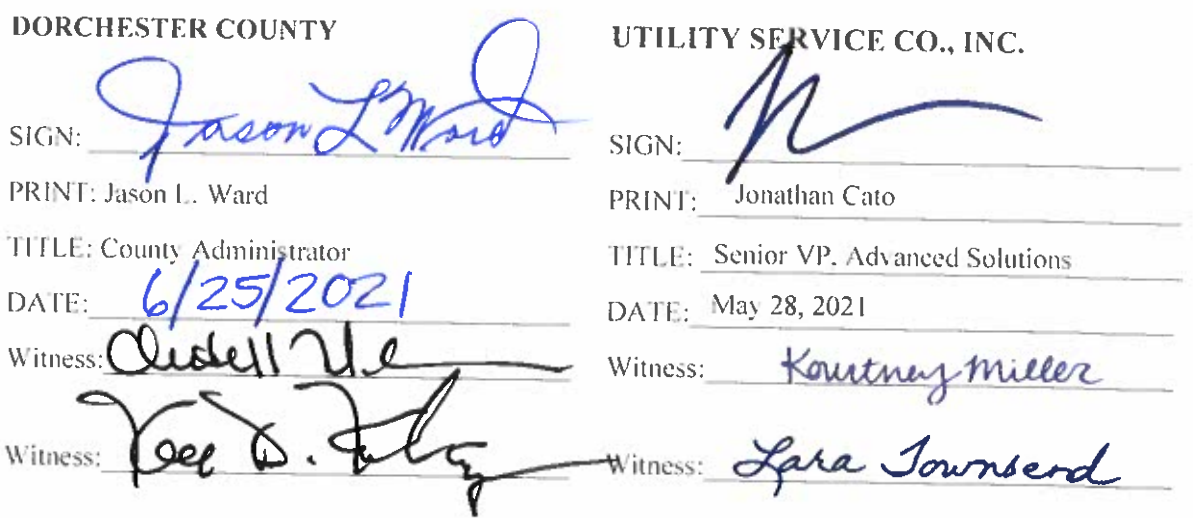 DORCHESTER COUNTY
SIGN: Jason L Ward
PRINT: Jason L. Ward
TITLE: County Administrator
DATE: 6/25/2021
Witness:
Witness:
UTILITY SERVICE CO., INC.
SIGN:
PRINT: Jonathan Cato
TITLE: Senior VP, Advanced Solutions
DATE: May 28, 2021
Witness: Kourtney Miller
Witness: Lara Townsend